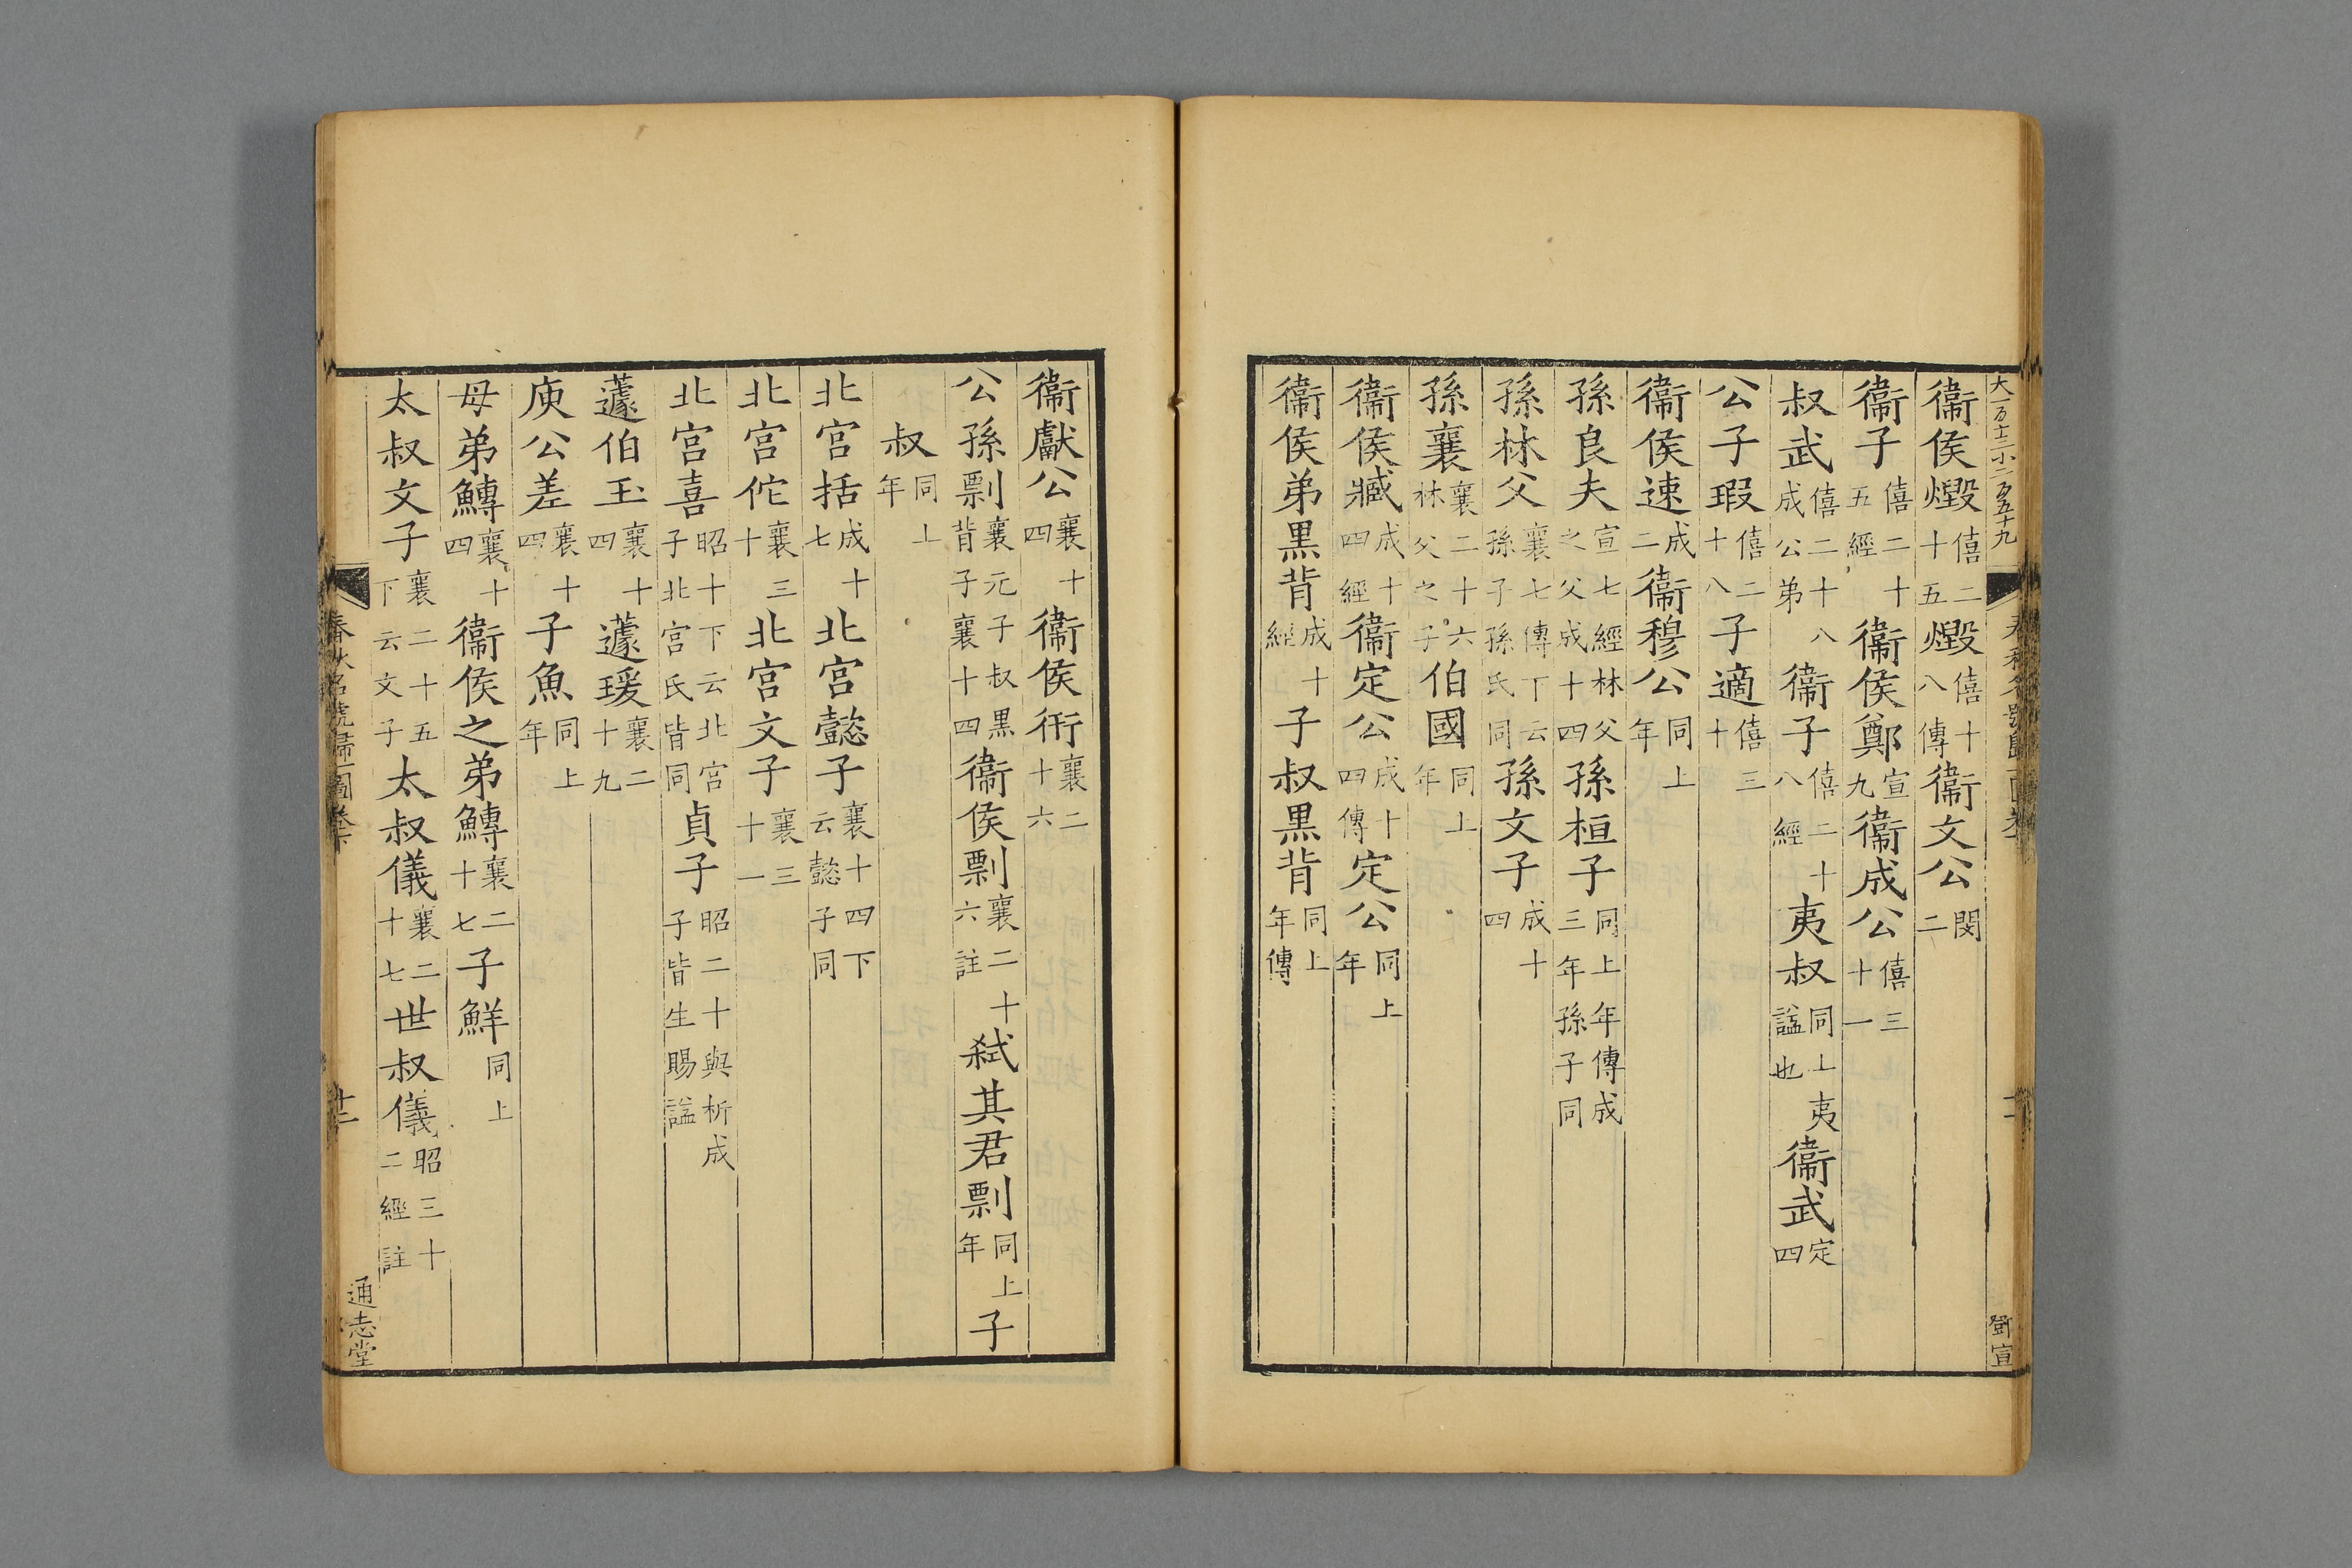 大一百十三小二百五十九
衞侯燬僖二十五燬僖十八傳衞文公閔二
衞子僖二十五經衞侯鄭宣九衞成公僖三十一
叔武僖二十八成公弟衞子僖二十八經夷叔同上夷謚也衞武定四
公子瑕僖二十八子適僖三十
衞侯速成二衞穆公同上年
孫良夫宣七經林父之父成十四孫桓子同上年傳成三年孫子同
孫林父襄七傳下云孫子孫氏同孫文子成十四
孫襄襄二十六林父之子伯國同上年
衞侯臧成十四經衞定公成十四傳定公同上年
衞侯弟黒背成十經子叔黒背同上年傳
鄧宣
衞獻公襄十四衞侯衎襄二十六
公孫剽襄元子叔黒背子襄十四衞侯剽襄二十六註弑其君剽同上年子
叔同上年
北宮括成十七北宮懿子襄十四下云懿子同
北宮佗襄三十北宮文子襄三十一
北宮喜昭十下云北宮子北宮氏皆同貞子昭二十與析成子皆生賜謚
蘧伯玉襄十四蘧瑗襄二十九
庾公差襄十四子魚同上年
母弟鱄襄十四衞侯之弟鱄襄二十七子鮮同上
太叔文子襄二十五下云文子太叔儀襄二十七世叔儀昭三十二經註
春秋名號歸一圖卷下
十二
通志堂